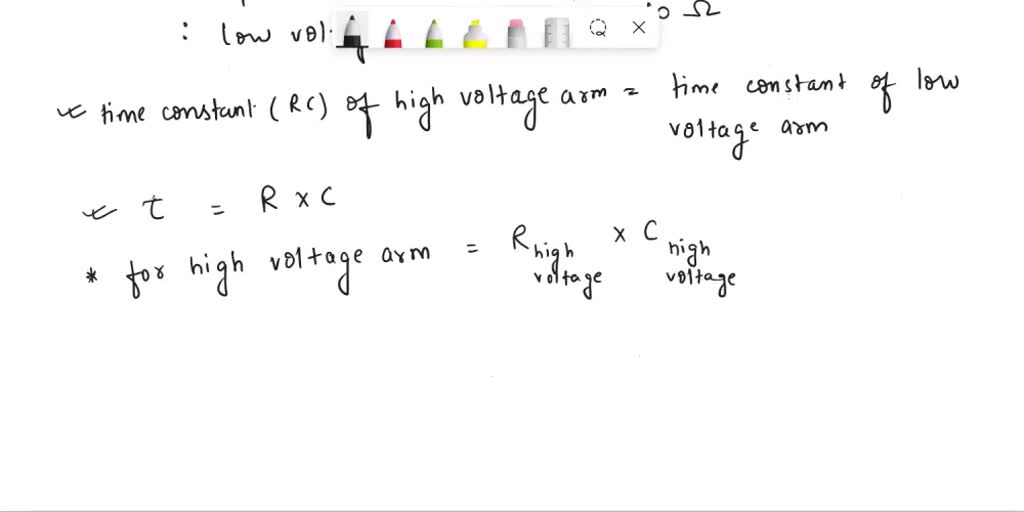 : low vol. Ω
time constant (RC) of high voltage arm = time constant of low
voltage arm
τ = R × C
* for high voltage arm = R high voltage × C high voltage